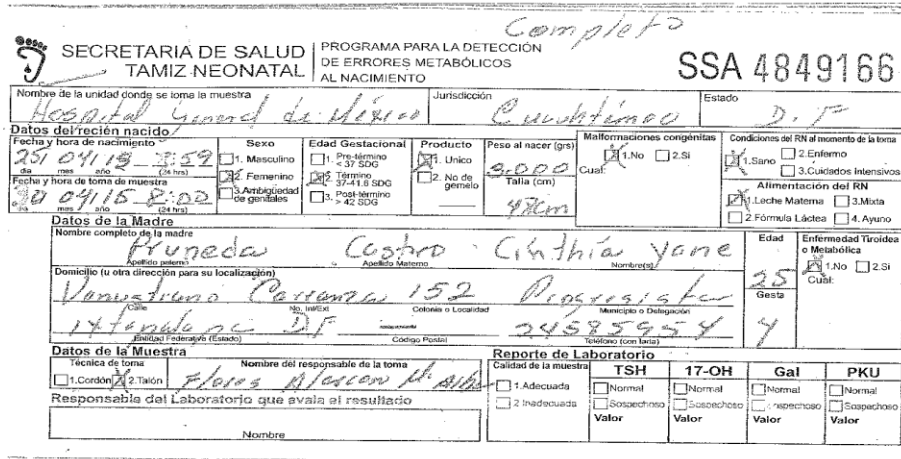 Completo
SECRETARIA DE SALUD
TAMIZ NEONATAL
PROGRAMA PARA LA DETECCIÓN
DE ERRORES METABÓLICOS
AL NACIMIENTO
SSA 4849166
Nombre de la unidad donde se toma la muestra
Hospital General de México
Jurisdicción
Cuauhtémoc
Estado
D.F
Datos del recién nacido
Fecha y hora de nacimiento
25 04 15
dia mes año (24 hrs)
Fecha y hora de toma de muestra
04 15 8:00
dia mes año (24 hrs)
Sexo
1. Masculino
2. Femenino
3. Ambigüedad
de genitales
Edad Gestacional
1. Pre-término
< 37 SDG
2. Término
37-41.6 SDG
3. Post-término
> 42 SDG
Producto
1. Unico
2. No de
gemelo
Peso al nacer (grs)
3.000
Talla (cm)
47cm
Malformaciones congénitas
1.No 2.Si
Cual:
Condiciones del RN al momento de la toma
1.Sano 2.Enfermo
3.Cuidados Intensivos
Alimentación del RN
1.Leche Materna 3.Mixta
2.Fórmula Láctea 4. Ayuno
Datos de la Madre
Nombre completo de la madre
Pruneda Castro Cinthia Yane
Apellido paterno Apellido Materno Nombre(s)
Edad
25
Gesta
4
Enfermedad Tiroidea
o Metabólica
1.No 2.Si
Cuál:
Domicilio (u otra dirección para su localización)
Venustiano Carranza 152 Progresista
Calle No. Int/Ext Colonia o Localidad Municipio o Delegación
DF 24585954
Entidad Federativa (Estado) Código Postal Teléfono (con lada)
Datos de la Muestra
Técnica de toma
1.Cordón 2.Talón
Nombre del responsable de la toma
Flores Alarcon M.
Responsable del Laboratorio que avala el resultado
Nombre
Reporte de Laboratorio
Calidad de la muestra
1.Adecuada
2 Inadecuada
TSH 17-OH Gal PKU
Normal Normal Normal Normal
Sospechoso Sospechoso Sospechoso Sospechoso
Valor Valor Valor Valor